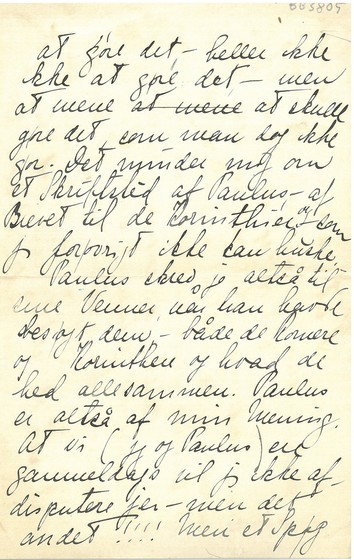 at gøre det, – heller ikke
ikke at gøre det – men
at mene at mene at skulle
gøre det som man dog ikke
gør. Det minder mig om
et Skriftsted af Paulus, – af
Brevet til de Korinthier, og som
jeg forøvrigt ikke kan huske.
Paulus skrev jo altså til
sine Venner, når han havde
besøgt dem, – både de Romere
og Korinthere og hvad de
hed allesammen. Paulus
er altså af min Mening.
At vi (jeg og Paulus) er
gammeldags vil jeg ikke af-
disputere jer – men det
andet !!!! Men et